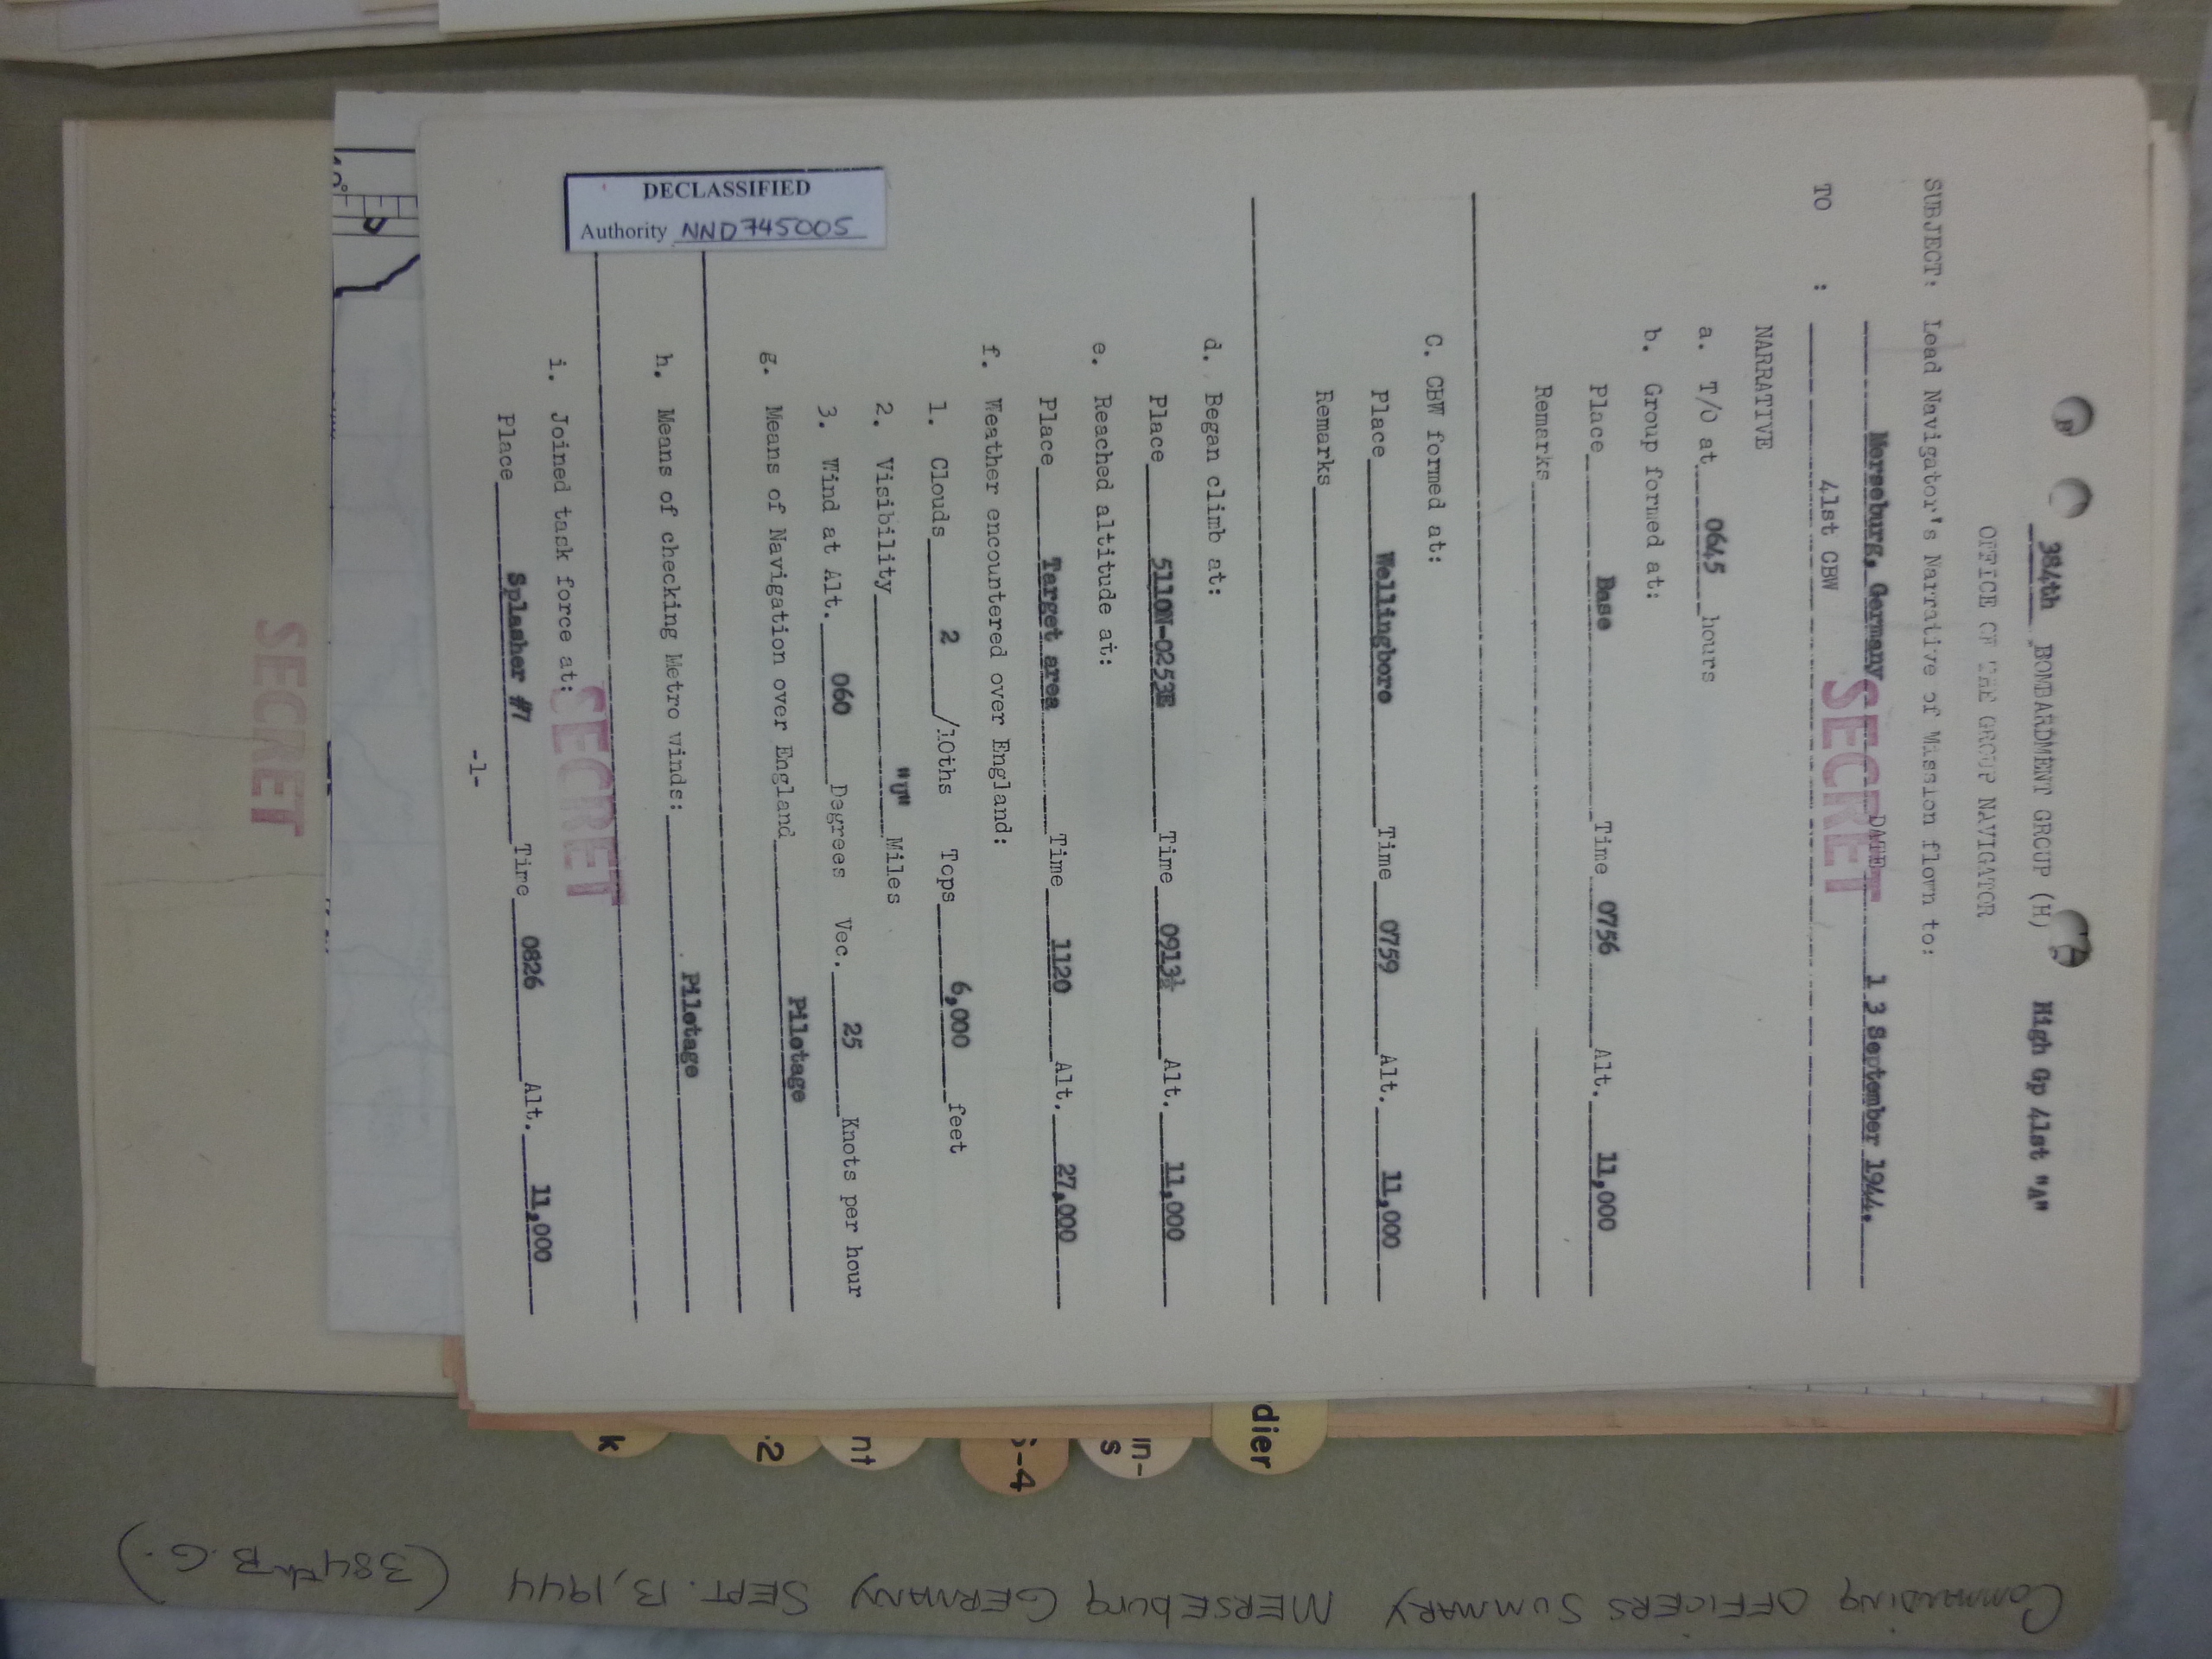 384th BOMBARDMENT GROUP (H) High Gp 41st "A"
OFFICE OF THE GROUP NAVIGATOR
SUBJECT: Lead Navigator's Narrative of Mission flown to:
Merseburg, Germany DATE 1 3 September 1944.
SECRET
TO : 41st CBW
NARRATIVE
a. T/O at 0645 hours
b. Group formed at:
Place Base Time 0756 Alt. 11,000
Remarks
C. CBW formed at:
Place Wellingboro Time 0759 Alt. 11,000
Remarks
d. Began climb at:
Place 5110N-0253E Time 0913½ Alt. 11,000
e. Reached altitude at:
Place Target area Time 1120 Alt. 27,000
f. Weather encountered over England:
1. Clouds 2 /10ths Tops 6,000 feet
2. Visibility "U" Miles
3. Wind at Alt. 060 Degrees Vec. 25 Knots per hour
g. Means of Navigation over England Pilotage
h. Means of checking Metro winds: Pilotage
i. Joined task force at:
SECRET
Place Splasher #7 Time 0826 Alt. 11,000
-1-
DECLASSIFIED
Authority NND745005
SECRET
10°
dier
in-
s
S-4
nt
-2
k
COMMANDING OFFICERS SUMMARY MERSEBURG GERMANY SEPT. 13, 1944 (384th B.G.)